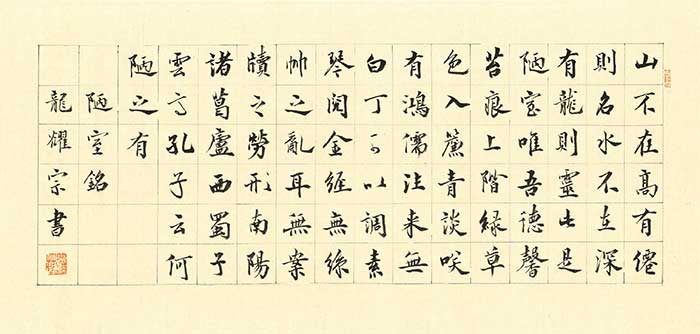 山不在高有僊
則名水不在深
有龍則靈此是
陋室唯吾德馨
苔痕上階緑草
色入簾青談咲
有鴻儒往来無
白丁可以調素
琴閲金經無絲
竹之亂耳無案
牘之勞形南陽
諸葛廬西蜀子
雲亭孔子云何
陋之有
陋室銘
龍耀宗書